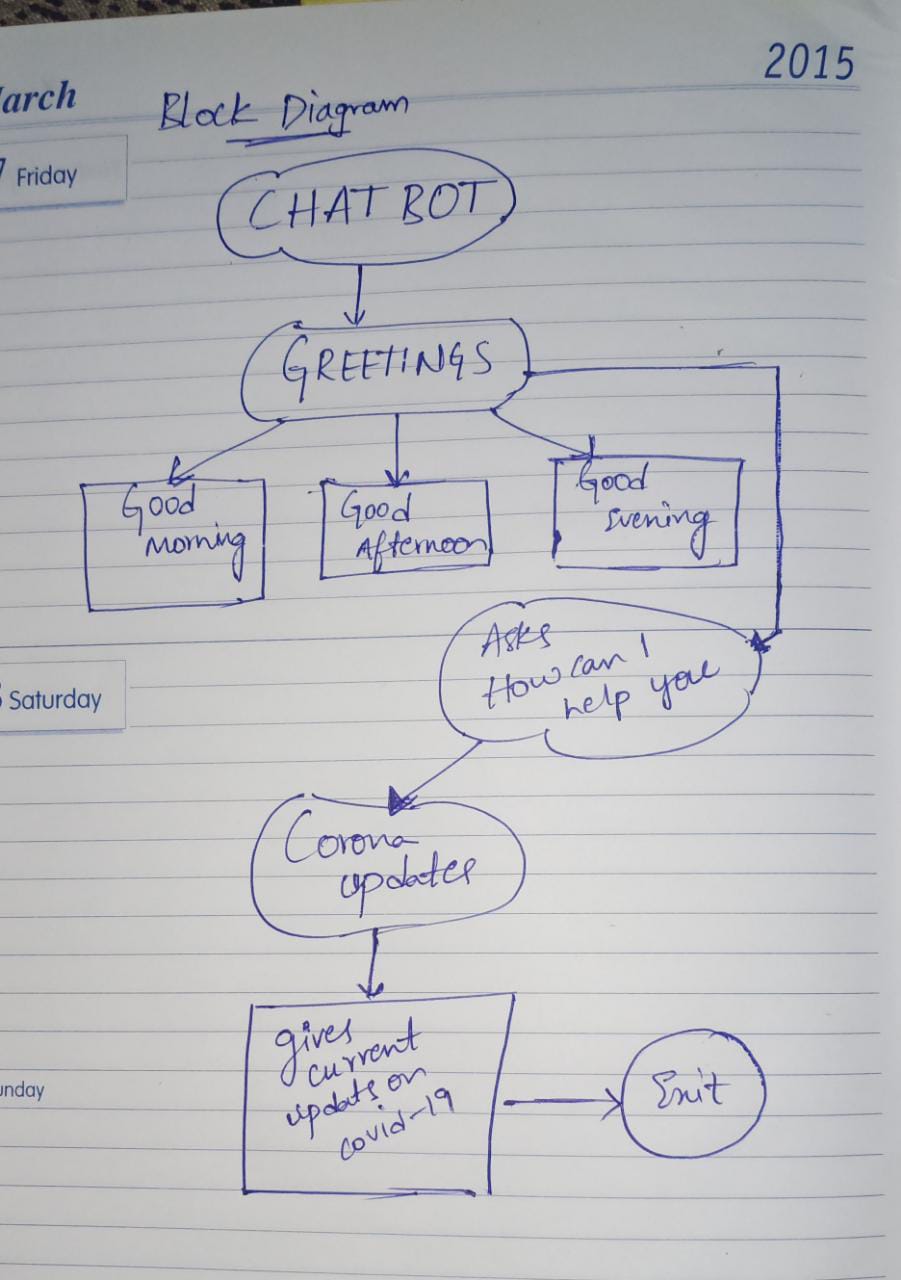 2015
arch
Block Diagram
Friday
CHAT BOT
GREETINGS
Good
Morning
Good
Afternoon
Good
Evening
Asks
How can I
help you
Saturday
Corona
updates
gives
current
updats on
covid-19
unday
Exit